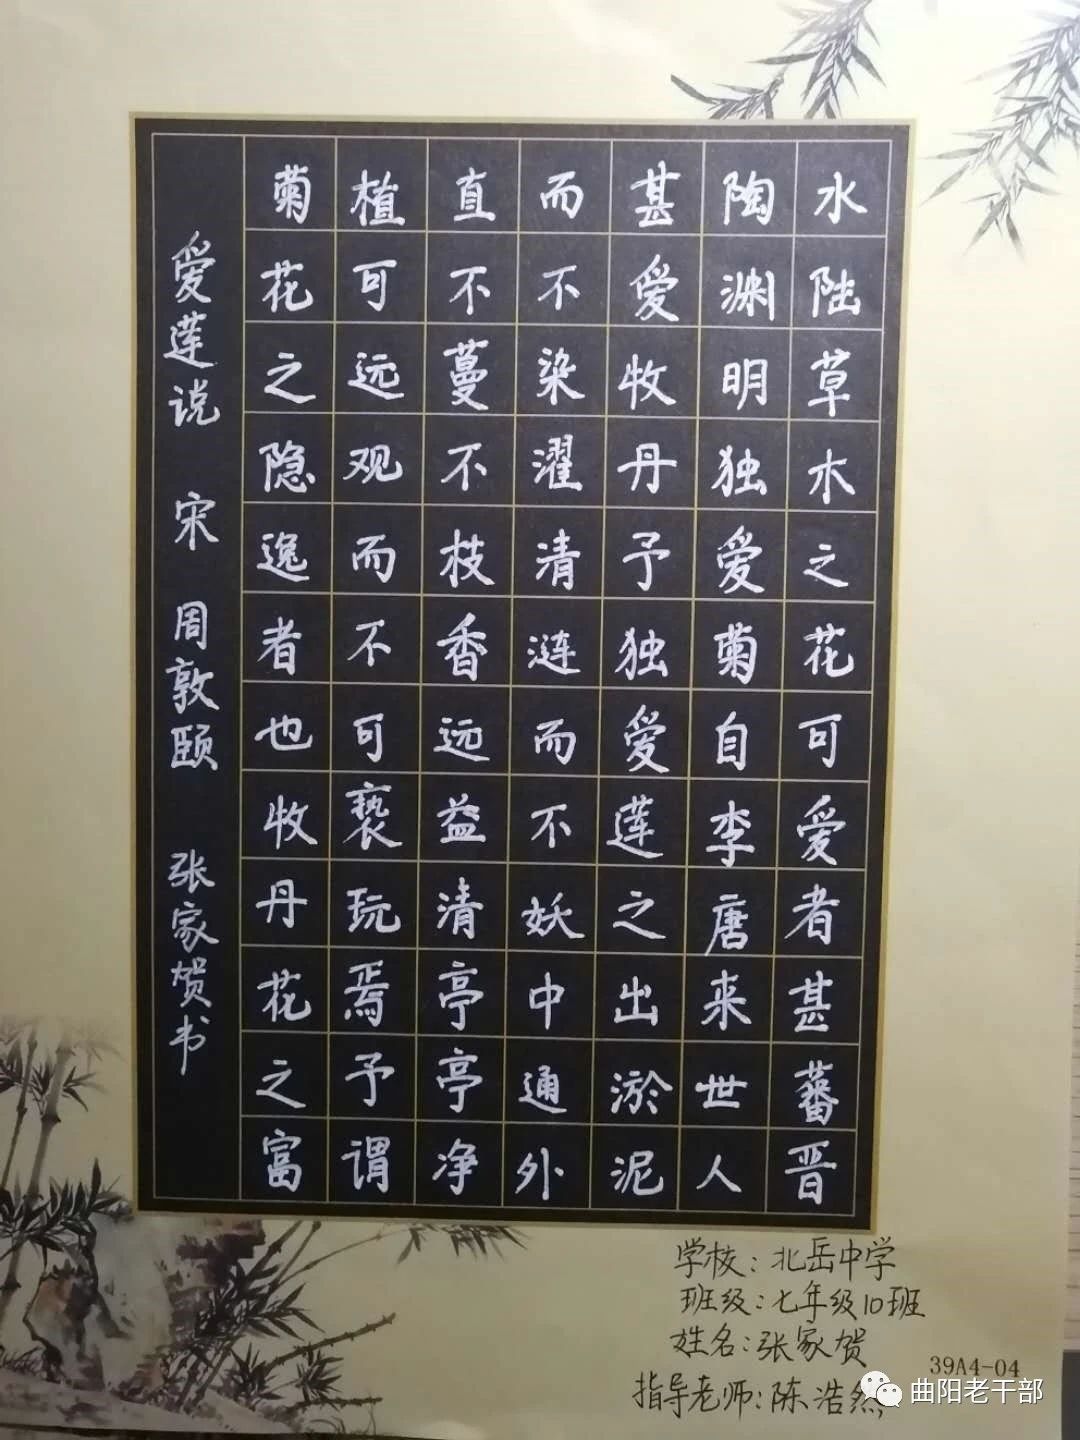 水陆草木之花可爱者甚蕃晋
陶渊明独爱菊自李唐来世人
甚爱牧丹予独爱莲之出淤泥
而不染濯清涟而不妖中通外
直不蔓不枝香远益清亭亭净
植可远观而不可亵玩焉予谓
菊花之隐逸者也牧丹花之富
爱莲说 宋 周敦颐 张家贺书
学校：北岳中学
班级：七年级10班
姓名：张家贺
39A4-04
指导老师：陈浩然
曲阳老干部